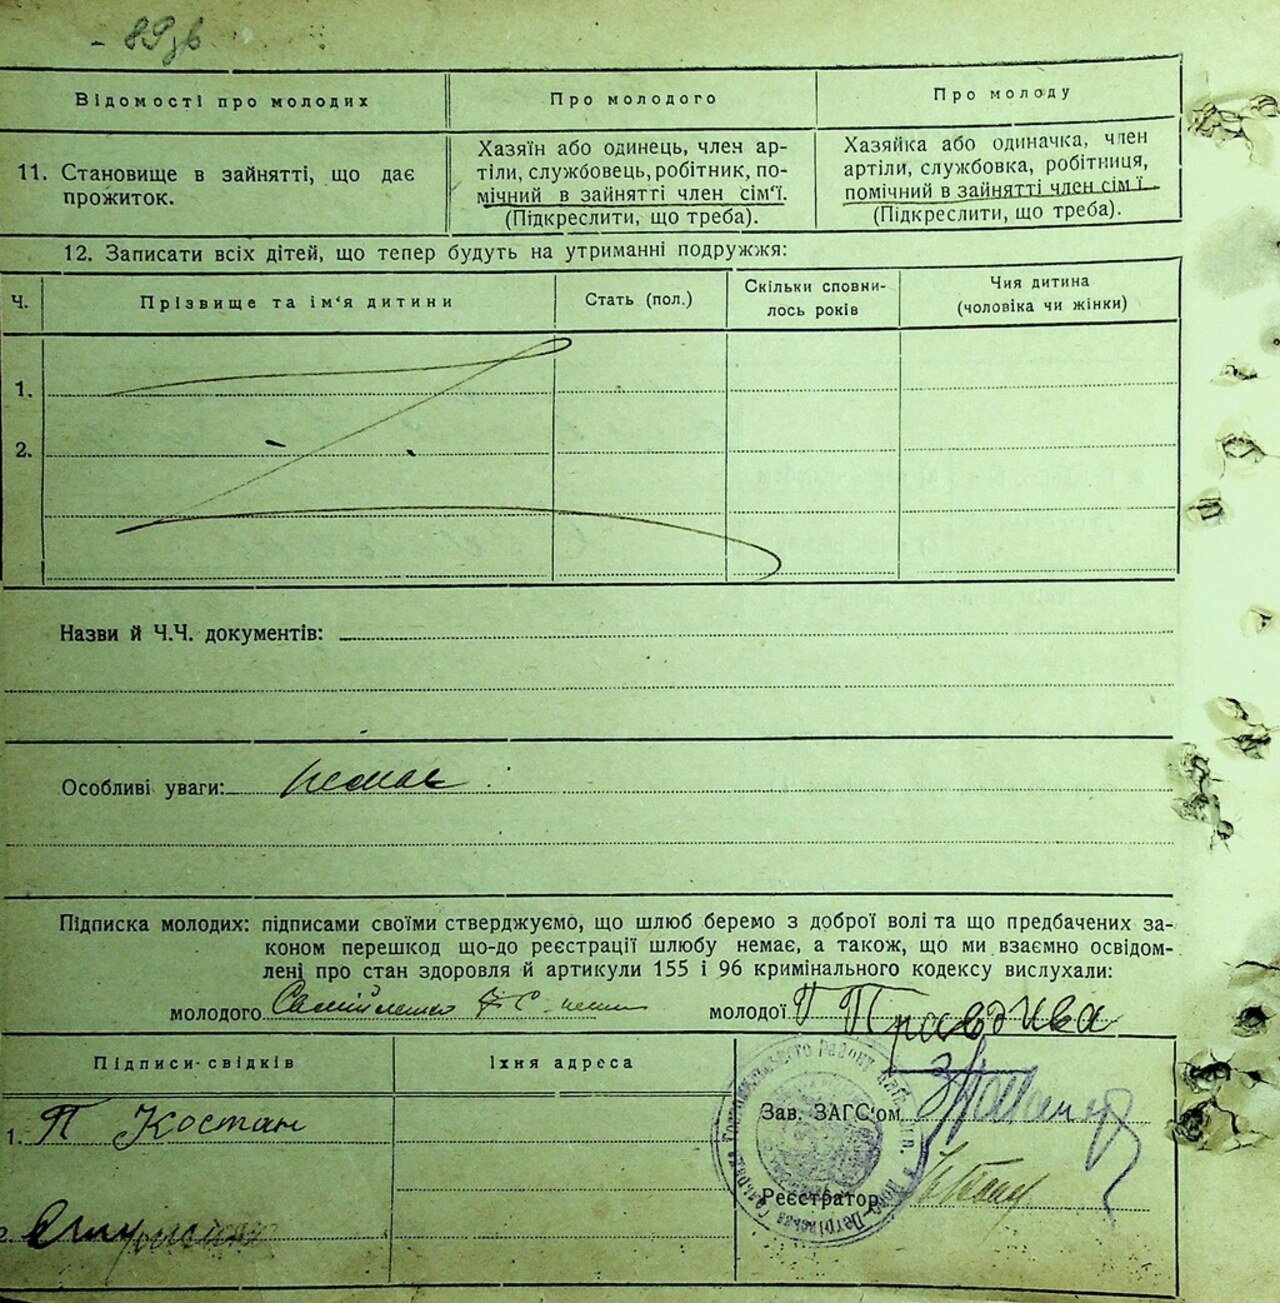 - 89зв
Відомості про молодих
Про молодого
Про молоду
11. Становище в зайнятті, що дає
прожиток.
Хазяїн або одинець, член ар-
тіли, службовець, робітник, по-
мічний в зайнятті член сім'ї.
(Підкреслити, що треба).
Хазяйка або одиначка, член
артіли, службовка, робітниця,
помічний в зайнятті член сім'ї.
(Підкреслити, що треба).
12. Записати всіх дітей, що тепер будуть на утриманні подружжя:
Ч.
Прізвище та ім'я дитини
Стать (пол.)
Скільки сповни-
лось років
Чия дитина
(чоловіка чи жінки)
1.
2.
Назви й Ч.Ч. документів:
Особливі уваги: немає
Підписка молодих: підписами своїми стверджуємо, що шлюб беремо з доброї волі та що предбачених за-
коном перешкод що-до реєстрації шлюбу немає, а також, що ми взаємно освідом-
лені про стан здоровля й артикули 155 і 96 кримінального кодексу вислухали:
молодого Самійленко
молодої П Правдива
Підписи-свідків
Їхня адреса
1. П Костан
Зав. ЗАГС'ом
Реєстратор